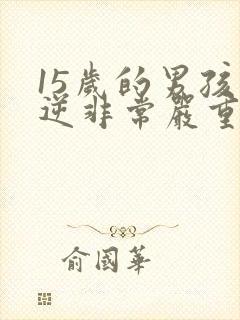 15歲的男孩
逆非常嚴重
俞國華